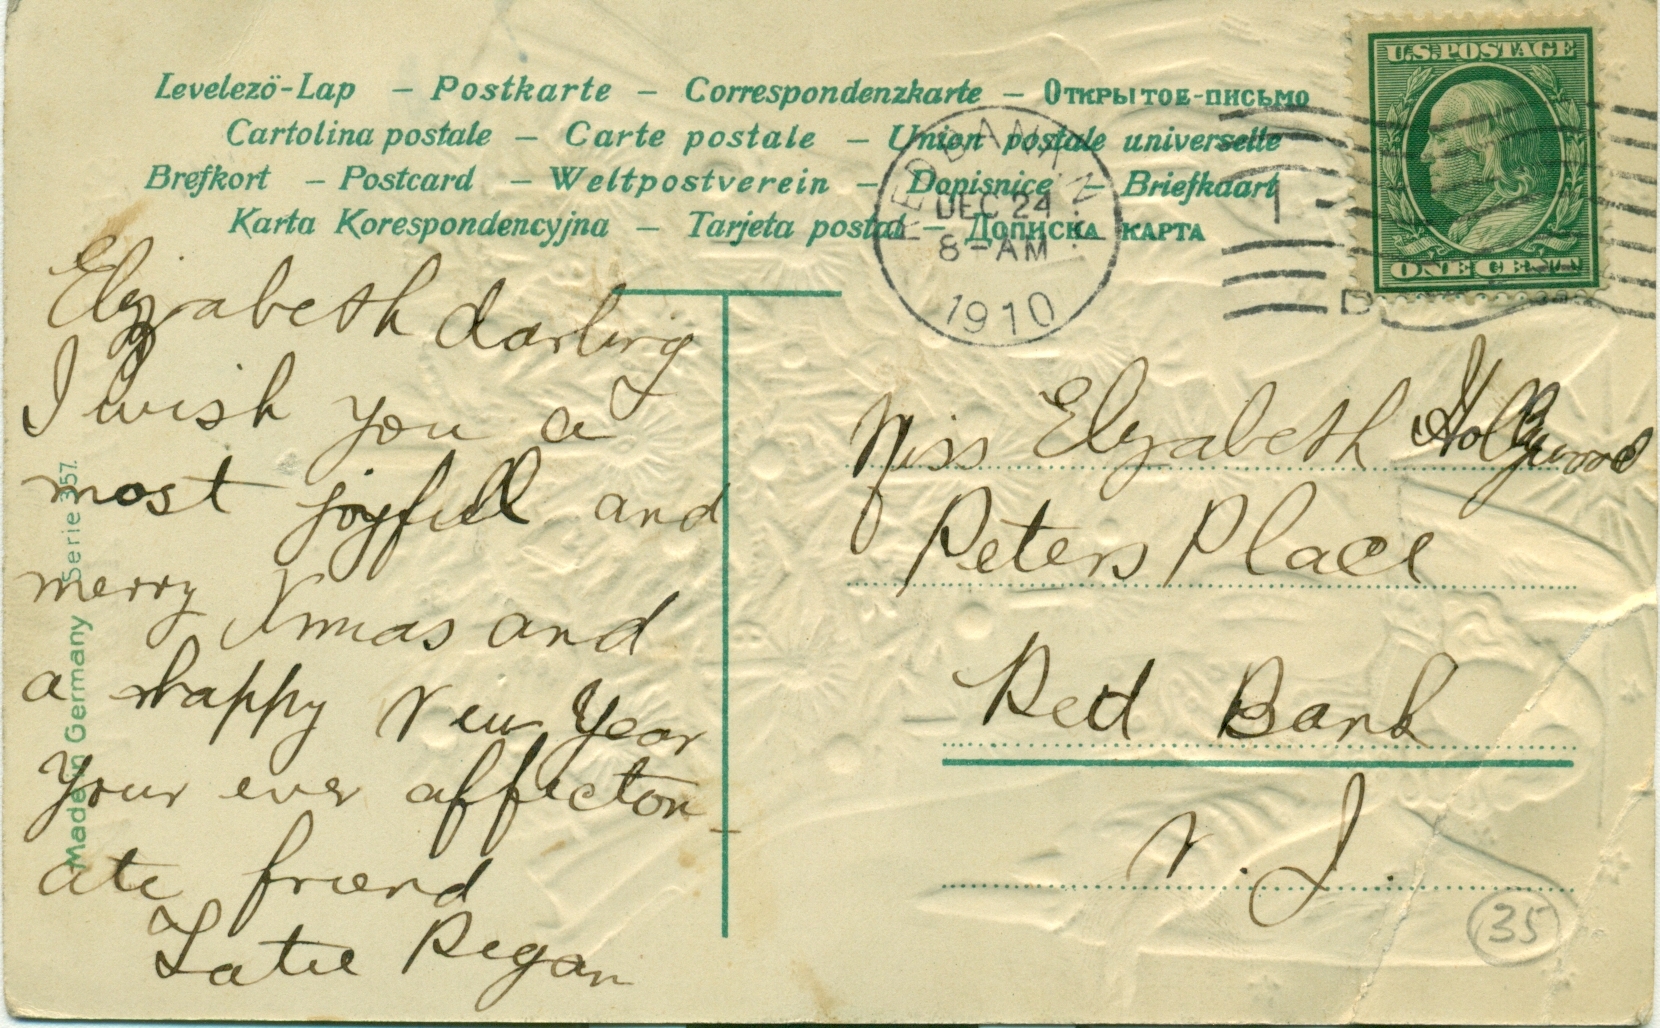 Levelezö-Lap – Postkarte – Correspondenzkarte – Открытое-письмо
Cartolina postale – Carte postale – Union postale universelle
Brefkort – Postcard – Weltpostverein – Dopisnice – Briefkaart
Karta Korespondencyjna – Tarjeta postal – Дописна карта
U.S. POSTAGE
ONE CENT
RED BANK N.J.
DEC 24
8-AM
1910
1
D
Elizabeth darling
I wish you a
most joyfull and
merry Xmas and
a happy New Year
Your ever affection-
ate friend
Regan
Miss Elizabeth
Peters Place
Red Bank
N. J.
35
Made in Germany Serie 357.